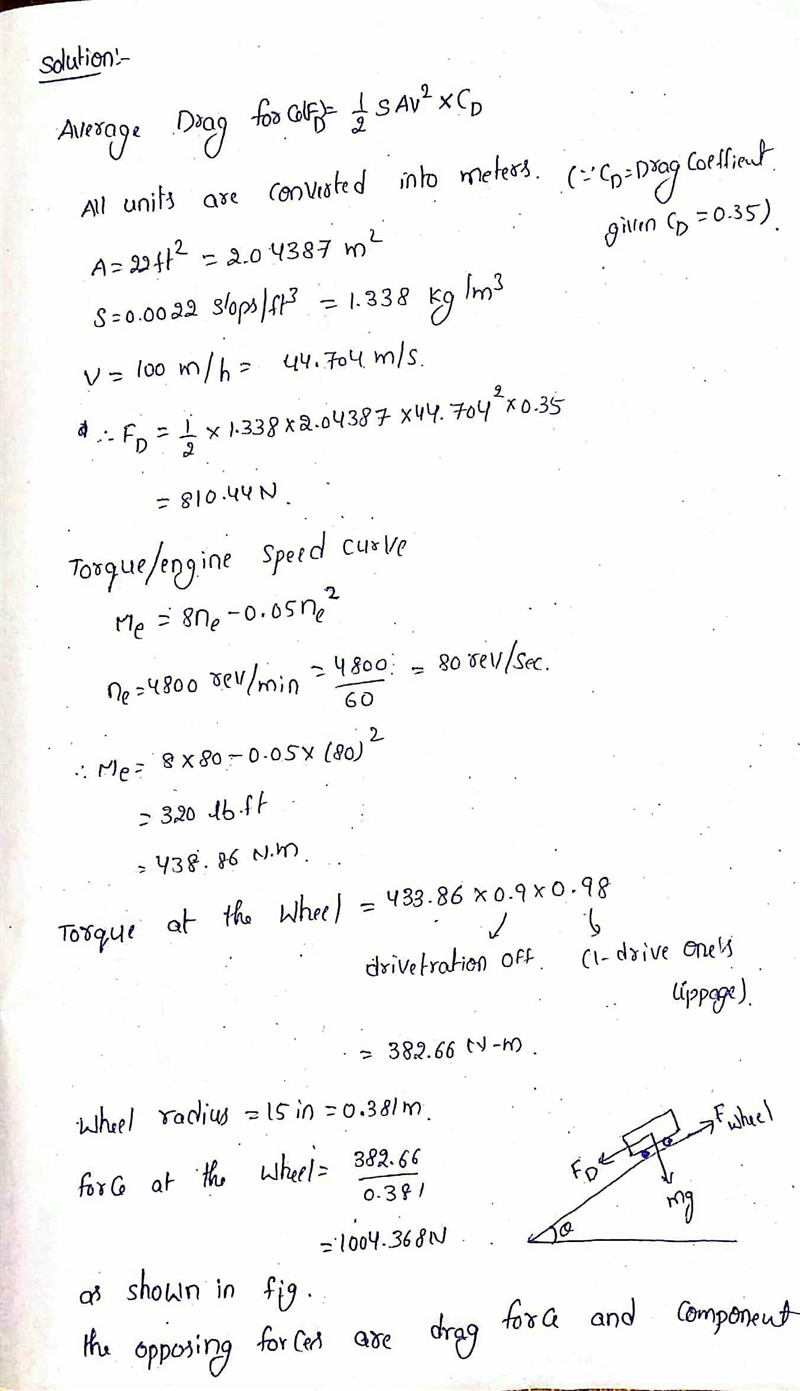 Solution:-
Average Drag force(F_D)= 1/2 S AV² × C_D
All units are converted into meters. (∵ C_D = Drag Coeffient
given C_D = 0.35).
A = 22 ft² = 2.04387 m²
S = 0.0022 slops/ft³ = 1.338 kg/m³
V = 100 m/h = 44.704 m/s.
∴ F_D = 1/2 × 1.338 × 2.04387 × 44.704² × 0.35
= 810.44 N.
Torque/engine speed curve
Me = 8ne - 0.05ne²
ne = 4800 rev/min = 4800/60 = 80 rev/sec.
∴ Me = 8 × 80 - 0.05 × (80)²
= 320 lb.ft
= 438.86 N.m.
Torque at the wheel = 433.86 × 0.9 × 0.98
drivetration off. (1- drive one's
lippage).
= 382.66 N-m.
Wheel radius = 15 in = 0.381m.
force at the wheel = 382.66/0.381
= 1004.368N
F_D F wheel
mg
θ
as shown in fig.
the opposing forces are drag force and component